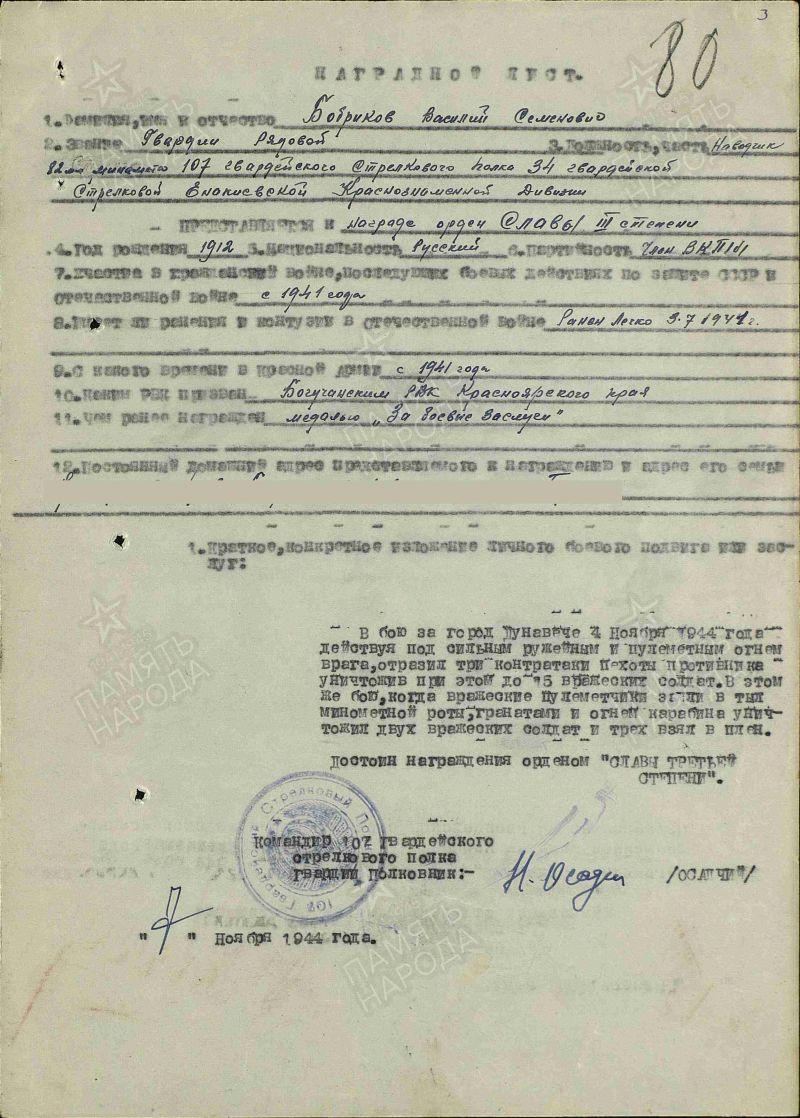 3
80
НАГРАДНОЙ ЛИСТ.
1. Фамилия, имя и отчество Бобриков Василий Семенович
2. Звание Гвардии Рядовой 3. Должность, часть Наводчик
82мм миномета 107 гвардейского Стрелкового полка 34 гвардейской
Стрелковой Енакиевской Краснознаменной Дивизии
ПРЕДСТАВЛЯЕТСЯ к награде орден Славы III степени
4. Год рождения 1912 5. Национальность Русский 6. Партийность Член ВКП(б)
7. Участие в гражданской войне, последующих боевых действиях по защите СССР и
отечественной войне с 1941 года
8. Имеет ли ранения и контузии в отечественной войне Ранен Легко
9. С какого времени в Красной Армии с 1941 года
10. Каким РВК призван Богучанским РВК Красноярского края
11. Чем ранее награжден медалью "За боевые заслуги"
12. Постоянный домашний адрес представляемого к награждению и адрес его семьи
1. Краткое, конкретное изложение личного боевого подвига или зас-
луг:
В бою за город 4 Ноября 1944 года
действуя под сильным ружейным и пулеметным огнем
врага, отразил три контратаки пехоты противника
уничтожив при этой до 15 вражеских солдат. В этом
же бою, когда вражеские пулеметчики зашли в тыл
минометной роты, гранатами и огнем карабина унич-
тожил двух вражеских солдат и трех взял в плен.
Достоин награждения орденом "СЛАВЫ ТРЕТЬЕЙ
СТЕПЕНИ".
Командир 107 гвардейского
стрелкового полка
гвардии полковник:- Н. Осадчий /ОСАДЧИЙ/
"7" Ноября 1944 года.
ПАМЯТЬ
НАРОДА